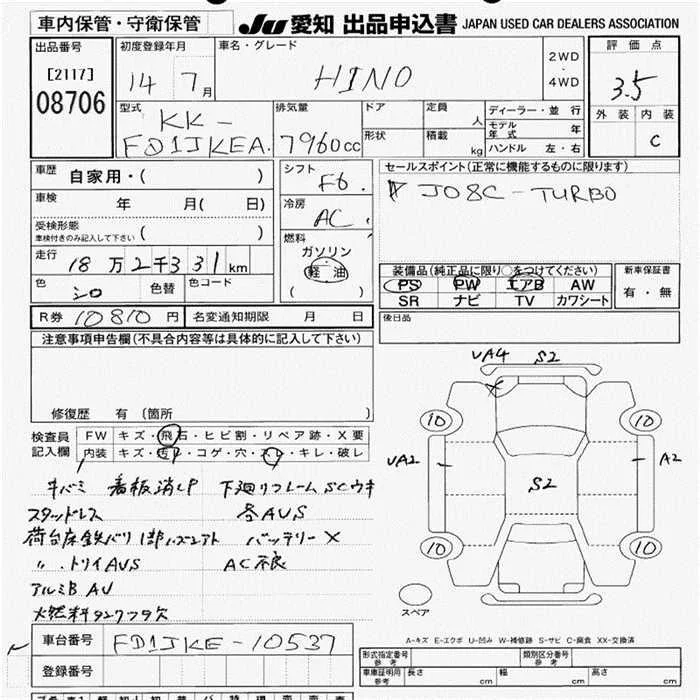 車内保管・守衛保管
JU 愛知 出品申込書 JAPAN USED CAR DEALERS ASSOCIATION
出品番号
[2117]
08706
初度登録年月
14 7月
車名・グレード
HINO
2WD
・
4WD
評価点
3.5
外装 内装
C
型式
KK-
FD1JKEA.
排気量
7960cc
ドア
形状
定員
人
積載
kg
ディーラー・並行
モデル年式 年
ハンドル 左・右
車歴 自家用・( )
車検 年 月( 日)
受検形態
車検付きのみ記入して下さい ( )
走行 18万2千331km
色 シロ 色替 色コード
R券 10810円 名変通知期限 月 日
シフト
F6.
冷房
AC
燃料
ガソリン
軽油
( )
セールスポイント(正常に機能するものに限ります)
J08C-TURBO
装備品(純正品に限り○をつけてください)
PS PW エアB AW
SR ナビ TV カワシート
新車保証書
有・無
後日品
注意事項申告欄(不具合内容等は具体的に記入して下さい)
修復歴 有(箇所 )
検査員記入欄
FW キズ・飛石・ヒビ割・リペア跡・X要
内装 キズ・汚れ・コゲ・穴・スレ・キレ・破レ
キバミ 看板消しP 下廻りフレームSCウキ
スタッドレス 各AUS
荷台床鉄バリ 1部ハズシアト バッテリーX
〃 トリイAUS AC不良
アルミB AU
火燃料タンクフタ欠
UA4 S2
X
10 10
UA2 S2 A2
10 10
スペア
A-キズ E-エクボ U-凹み W-補修跡 S-サビ C-腐食 XX-交換済
車台番号 FD1JKE-10537
登録番号
形式指定番号
参考
類別区分番号
参考
車庫証明用
参考
長さ cm 幅 cm 高さ cm